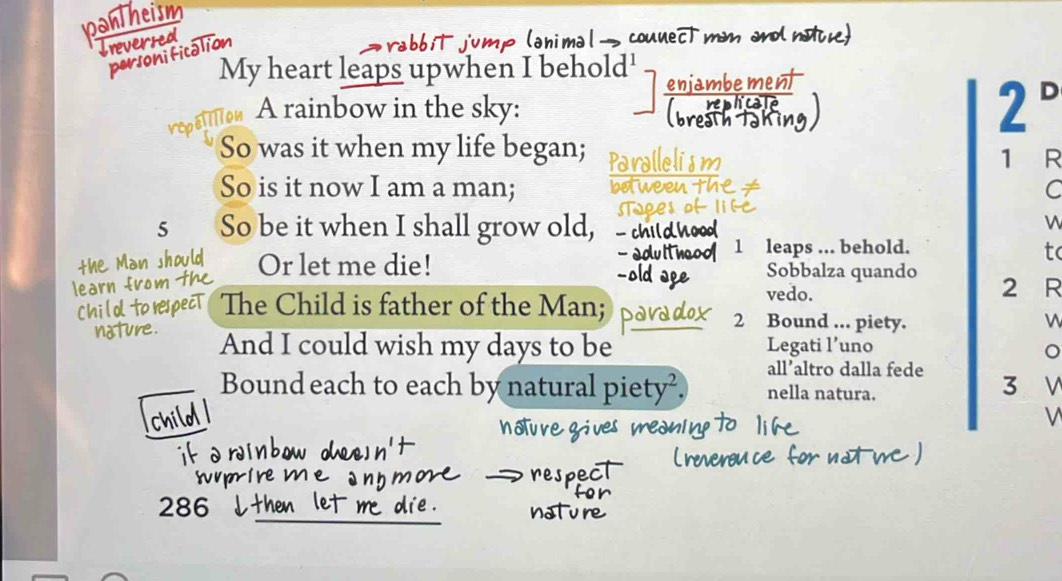 panTheism
↓reversed
personificaTion
→rabbiT jump (animal → connect man and nature)
My heart leaps upwhen I behold¹
enjambement
replicate
(breath taking)
A rainbow in the sky:
repeTITIon
↓
So was it when my life began;
Parallelism
between the ≠
STages of life
So is it now I am a man;
So be it when I shall grow old,
5
- childhood
- adulthood
-old age
Or let me die!
the Man should
learn from the
child to respect
nature.
The Child is father of the Man;
paradox
And I could wish my days to be
Bound each to each by natural piety².
1 leaps ... behold.
Sobbalza quando
vedo.
2 Bound ... piety.
Legati l'uno
all'altro dalla fede
nella natura.
child
if a rainbow doesn't
surprise me anymore
↓then let me die.
→ respect
for
nature
nature gives meaning to life
(reverence for nature)
286
2 D
1 R
C
W
to
2 R
W
o
3 W
W